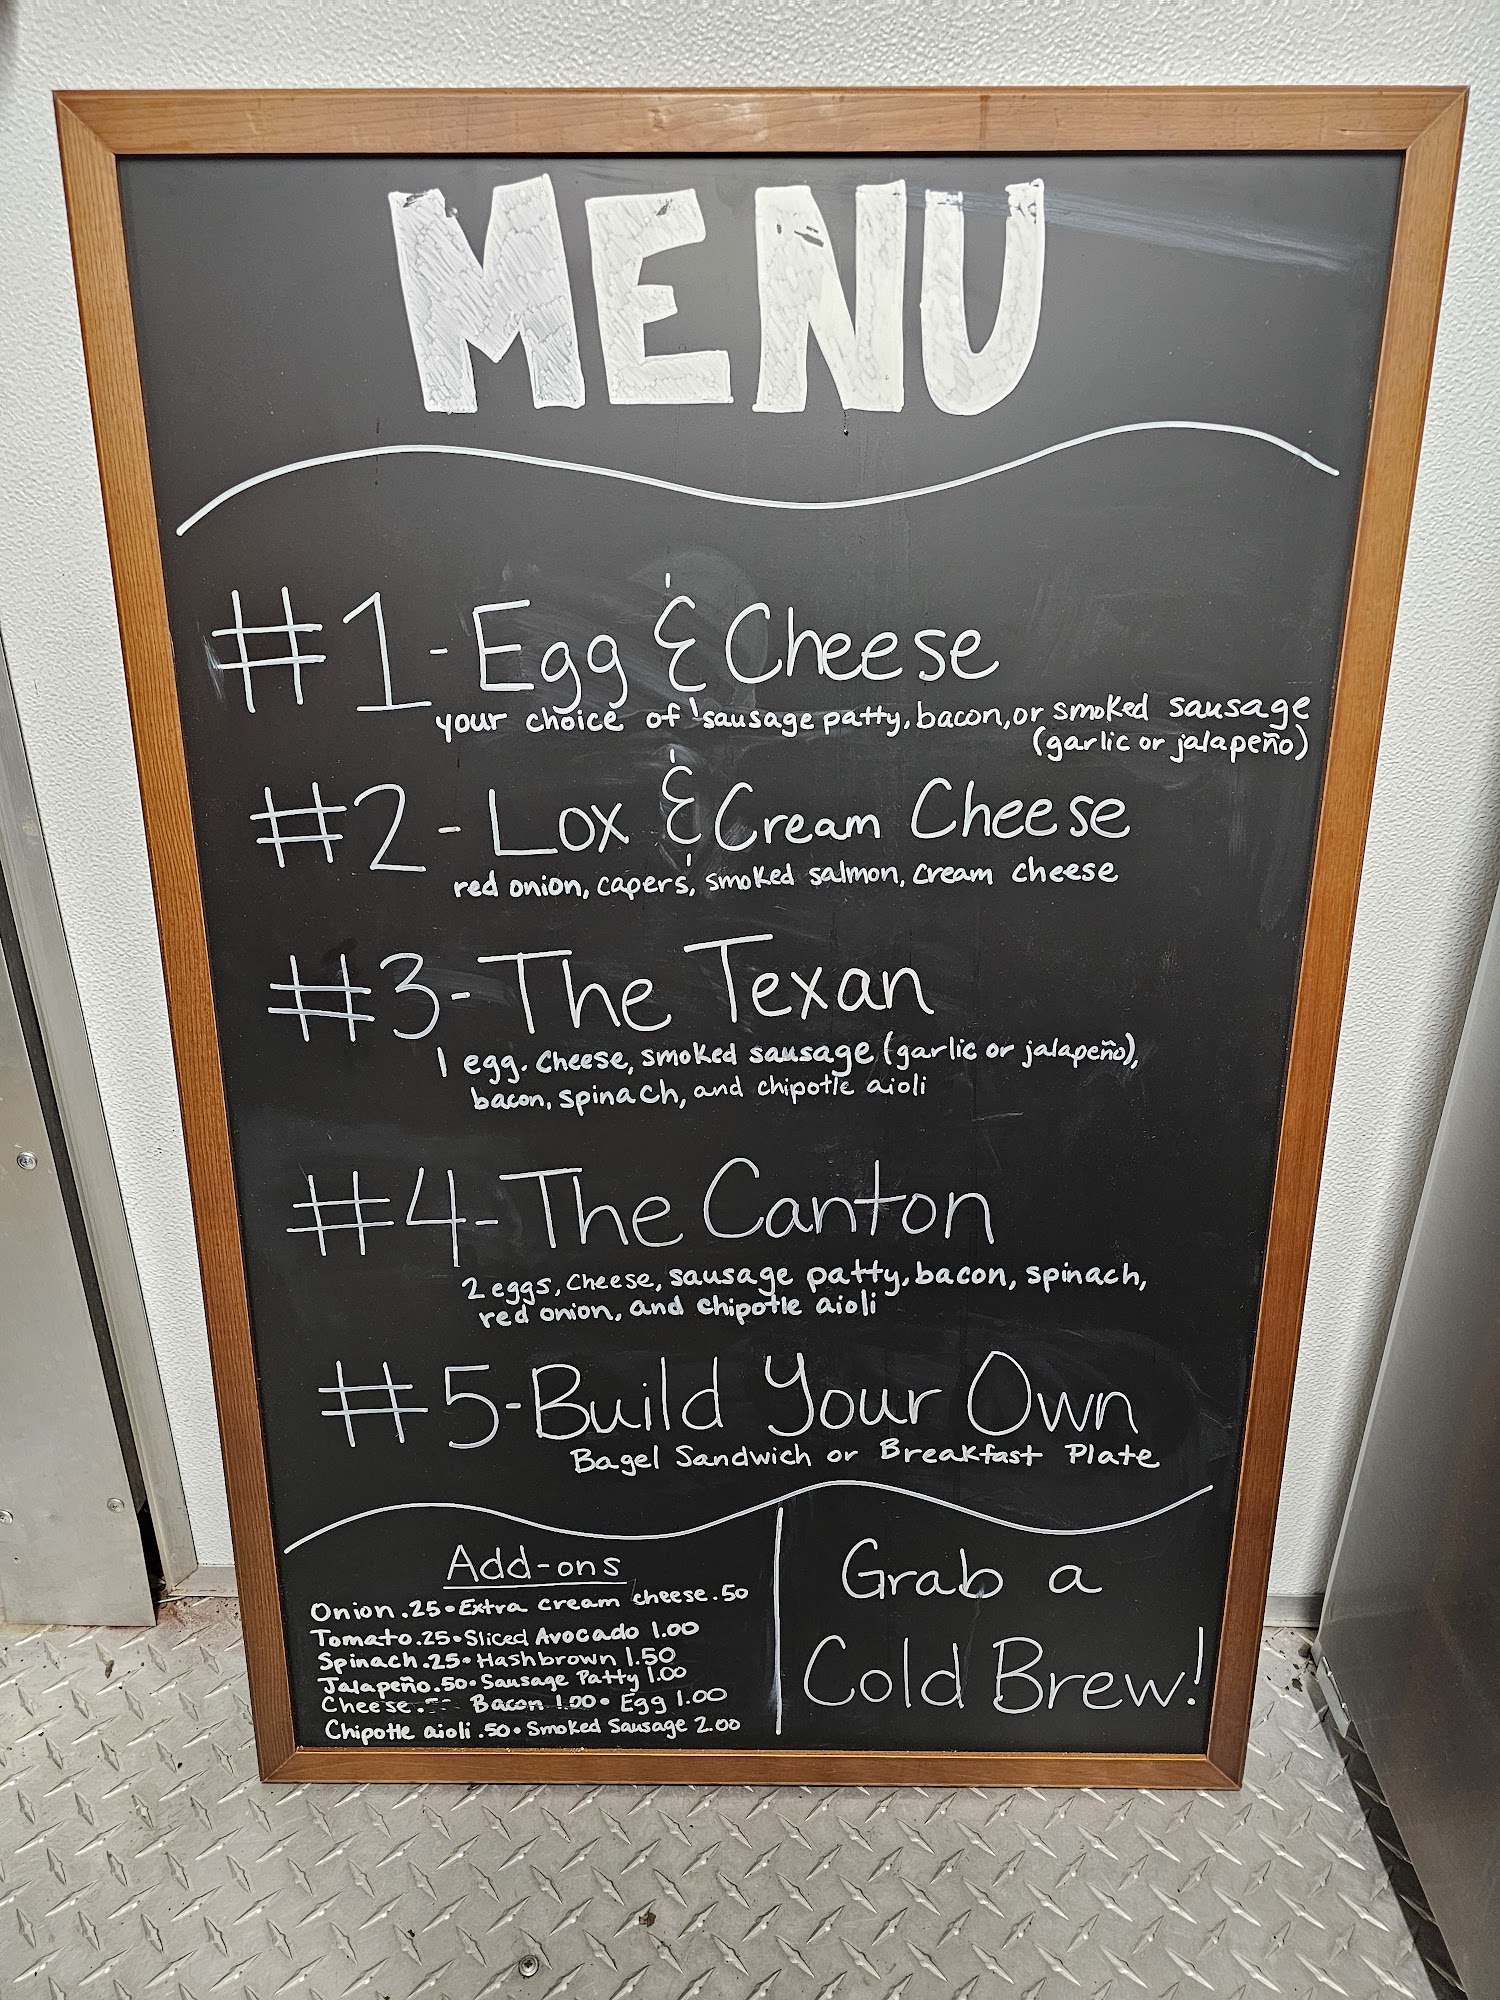 MENU
#1-Egg & Cheese
your choice of sausage patty, bacon, or smoked sausage
(garlic or jalapeño)
#2-Lox & Cream Cheese
red onion, capers, smoked salmon, cream cheese
#3-The Texan
1 egg, cheese, smoked sausage (garlic or jalapeño),
bacon, spinach, and chipotle aioli
#4-The Canton
2 eggs, cheese, sausage patty, bacon, spinach,
red onion, and chipotle aioli
#5-Build Your Own
Bagel Sandwich or Breakfast Plate
Add-ons
Onion .25•Extra cream cheese .50
Tomato .25•Sliced Avocado 1.00
Spinach .25•Hashbrown 1.50
Jalapeño .50•Sausage Patty 1.00
Cheese Bacon 1.00• Egg 1.00
Chipotle aioli .50•Smoked Sausage 2.00
Grab a
Cold Brew!